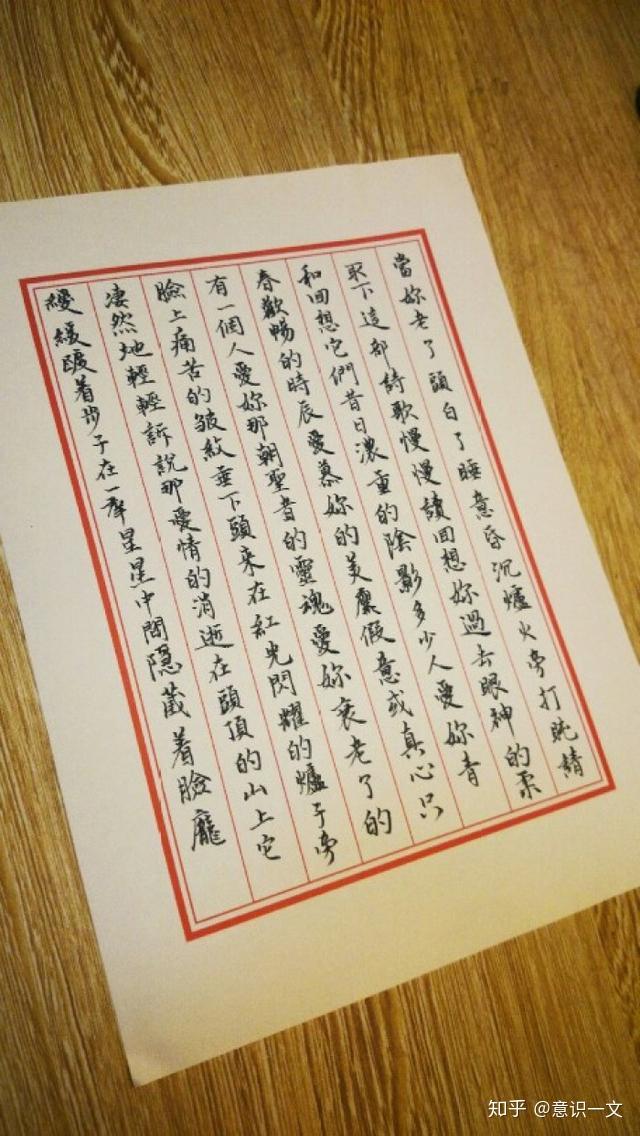 當妳老了頭白了睡意昏沉爐火旁打盹請
取下這部詩歌慢慢讀回想妳過去眼神的柔
和回想它們昔日濃重的陰影多少人愛妳青
春歡暢的時辰愛慕妳的美麗假意或真心只
有一個人愛妳那朝聖者的靈魂愛妳衰老了的
臉上痛苦的皺紋垂下頭來在紅光閃耀的爐子旁
凄然地輕輕訴說那愛情的消逝在頭頂的山上它
緩緩踱着步子在一羣星星中間隱藏着臉龐
知乎 @意识一文